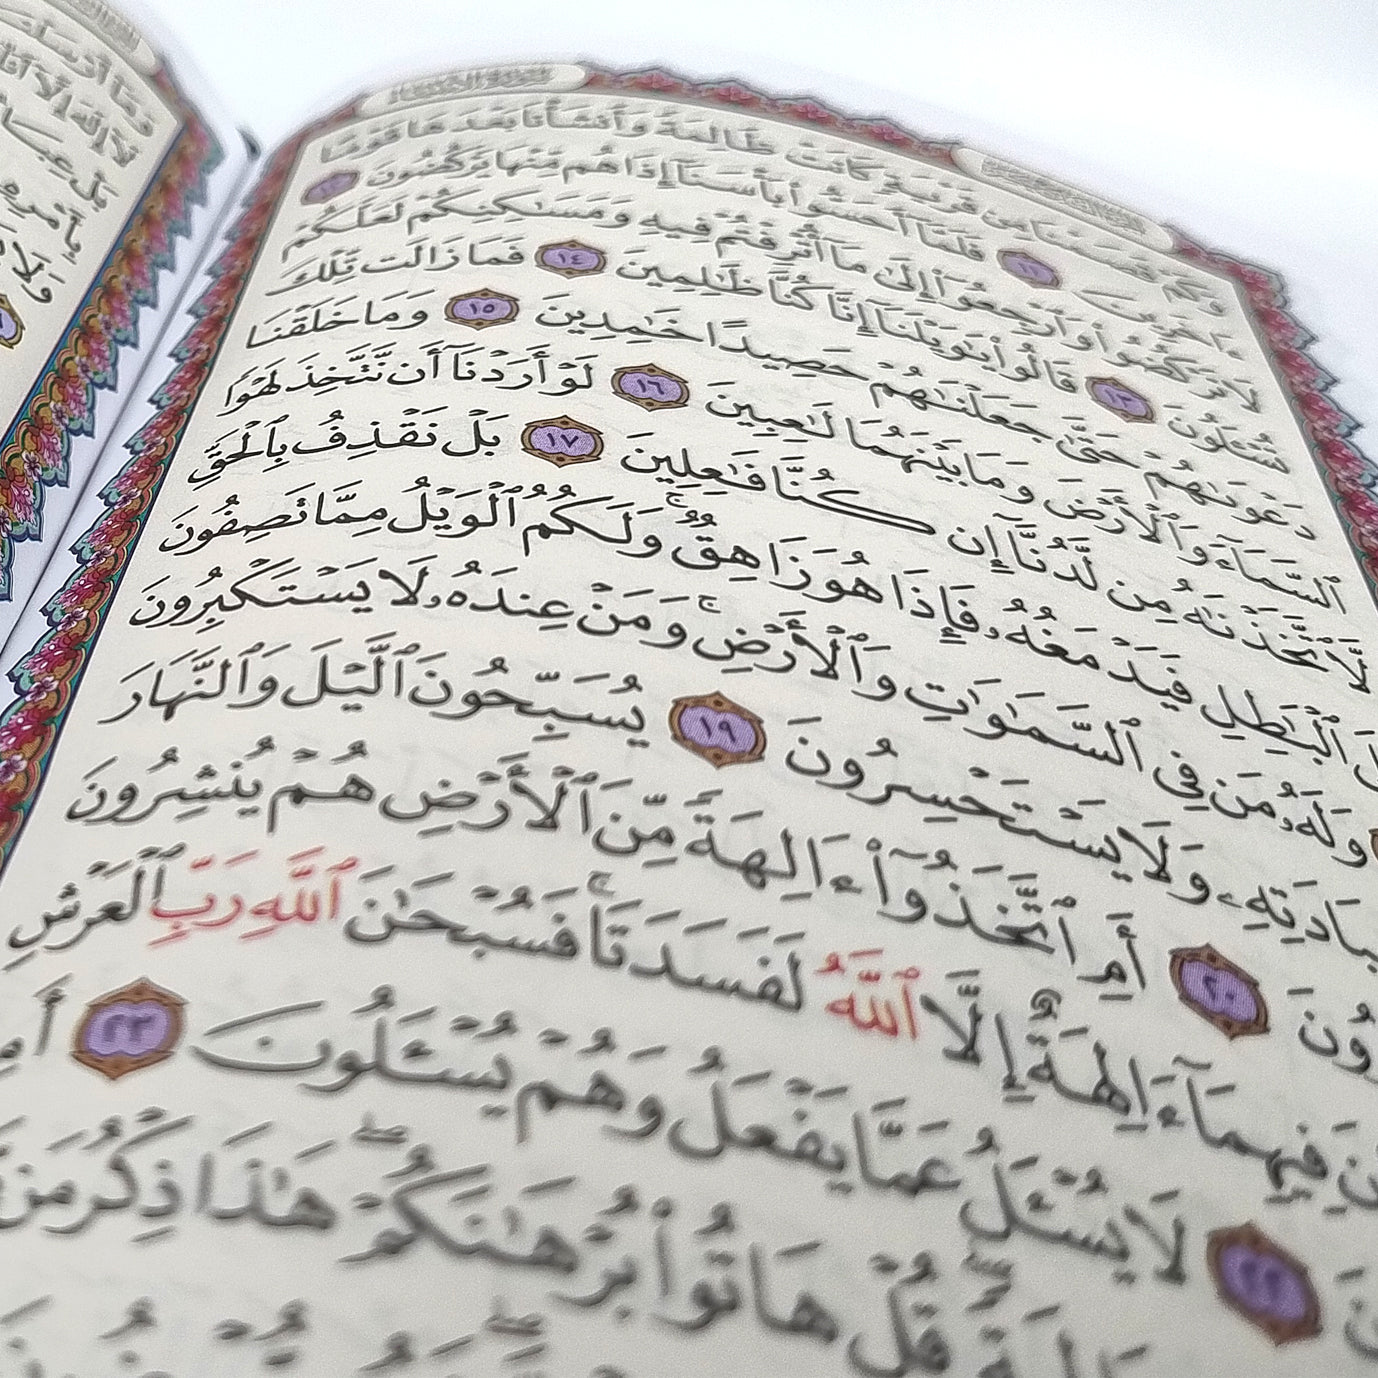 وَكَمْ قَصَمْنَا مِن قَرْيَةٍ كَانَتْ ظَالِمَةً وَأَنشَأْنَا بَعْدَهَا قَوْمًا
ءَاخَرِينَ ١١ فَلَمَّآ أَحَسُّوا۟ بَأْسَنَآ إِذَا هُم مِّنْهَا يَرْكُضُونَ ١٢
لَا تَرْكُضُوا۟ وَٱرْجِعُوٓا۟ إِلَىٰ مَآ أُتْرِفْتُمْ فِيهِ وَمَسَٰكِنِكُمْ لَعَلَّكُمْ
تُسْـَٔلُونَ ١٣ قَالُوا۟ يَٰوَيْلَنَآ إِنَّا كُنَّا ظَٰلِمِينَ ١٤ فَمَا زَالَت تِّلْكَ
دَعْوَىٰهُمْ حَتَّىٰ جَعَلْنَٰهُمْ حَصِيدًا خَٰمِدِينَ ١٥ وَمَا خَلَقْنَا
ٱلسَّمَآءَ وَٱلْأَرْضَ وَمَا بَيْنَهُمَا لَٰعِبِينَ ١٦ لَوْ أَرَدْنَآ أَن نَّتَّخِذَ لَهْوًا
لَّٱتَّخَذْنَٰهُ مِن لَّدُنَّآ إِن كُنَّا فَٰعِلِينَ ١٧ بَلْ نَقْذِفُ بِٱلْحَقِّ
ٱلْبَٰطِلِ فَيَدْمَغُهُۥ فَإِذَا هُوَ زَاهِقٌ ۚ وَلَكُمُ ٱلْوَيْلُ مِمَّا تَصِفُونَ
وَلَهُۥ مَن فِى ٱلسَّمَٰوَٰتِ وَٱلْأَرْضِ ۚ وَمَنْ عِندَهُۥ لَا يَسْتَكْبِرُونَ
وَلَا يَسْتَحْسِرُونَ ١٩ يُسَبِّحُونَ ٱلَّيْلَ وَٱلنَّهَارَ
٢٠ أَمِ ٱتَّخَذُوٓا۟ ءَالِهَةً مِّنَ ٱلْأَرْضِ هُمْ يُنشِرُونَ
فِيهِمَآ ءَالِهَةٌ إِلَّا ٱللَّهُ لَفَسَدَتَا ۚ فَسُبْحَٰنَ ٱللَّهِ رَبِّ ٱلْعَرْشِ
٢٢ لَا يُسْـَٔلُ عَمَّا يَفْعَلُ وَهُمْ يُسْـَٔلُونَ ٢٣
قُلْ هَاتُوا۟ بُرْهَٰنَكُمْ ۖ هَٰذَا ذِكْرُ مَن